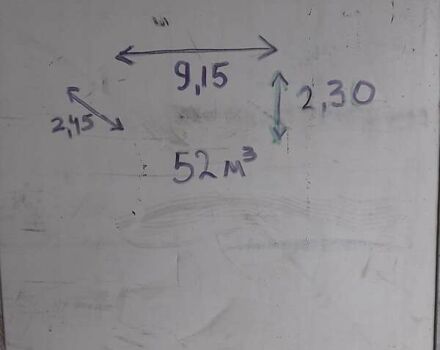 9,15
2,30
2,45
52 м³